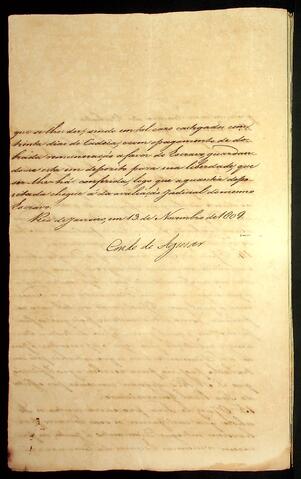 que se lhe der, sendo em tal caso castigados com
trinta dias de Cadêa, e com o pagamento de do-
brada remuneração a favor do Escravo, guardan-
do-se esta em deposito para sua liberdade, que
ser lhe há conferida, logo que a quantia depo-
sitada chegue á da avaliação judicial do mesmo
Escravo.
Rio de Janeiro, em 13 de Novembro de 1809.
Conde de Aguiar